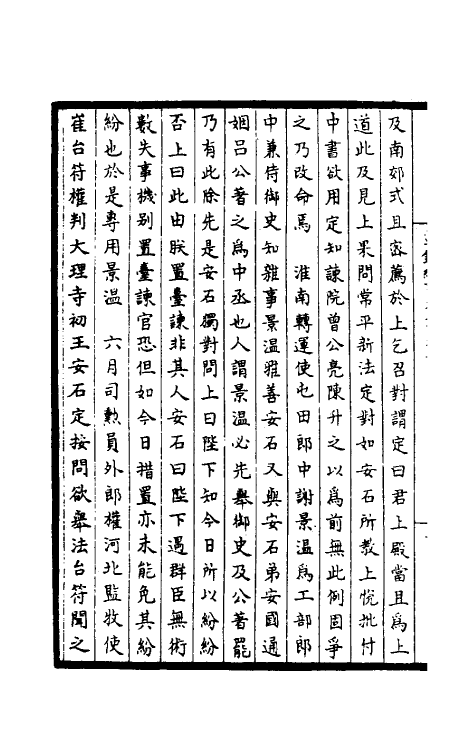 及南郊式且密薦於上乞召對謂定曰君上殿當且為上
道此及見上果問常平新法定對如安石所教上悅批付
中書欲用定知諫院曾公亮陳升之以為前無此例固爭
之乃改命焉　淮南轉運使屯田郎中謝景溫為工部郎
中兼侍御史知雜事景溫雅善安石又與安石弟安國通
姻呂公著之為中丞也人謂景溫必先舉御史及公著罷
乃有此除先是安石獨對問上曰陛下知今日所以紛紛
否上曰此由朕置臺諫非其人安石曰陛下遇群臣無術
數失事機別置臺諫官恐但如今日措置亦未能免其紛
紛也於是專用景溫　六月司勲員外郎權河北監牧使
崔台符權判大理寺初王安石定按問欲舉法台符聞之